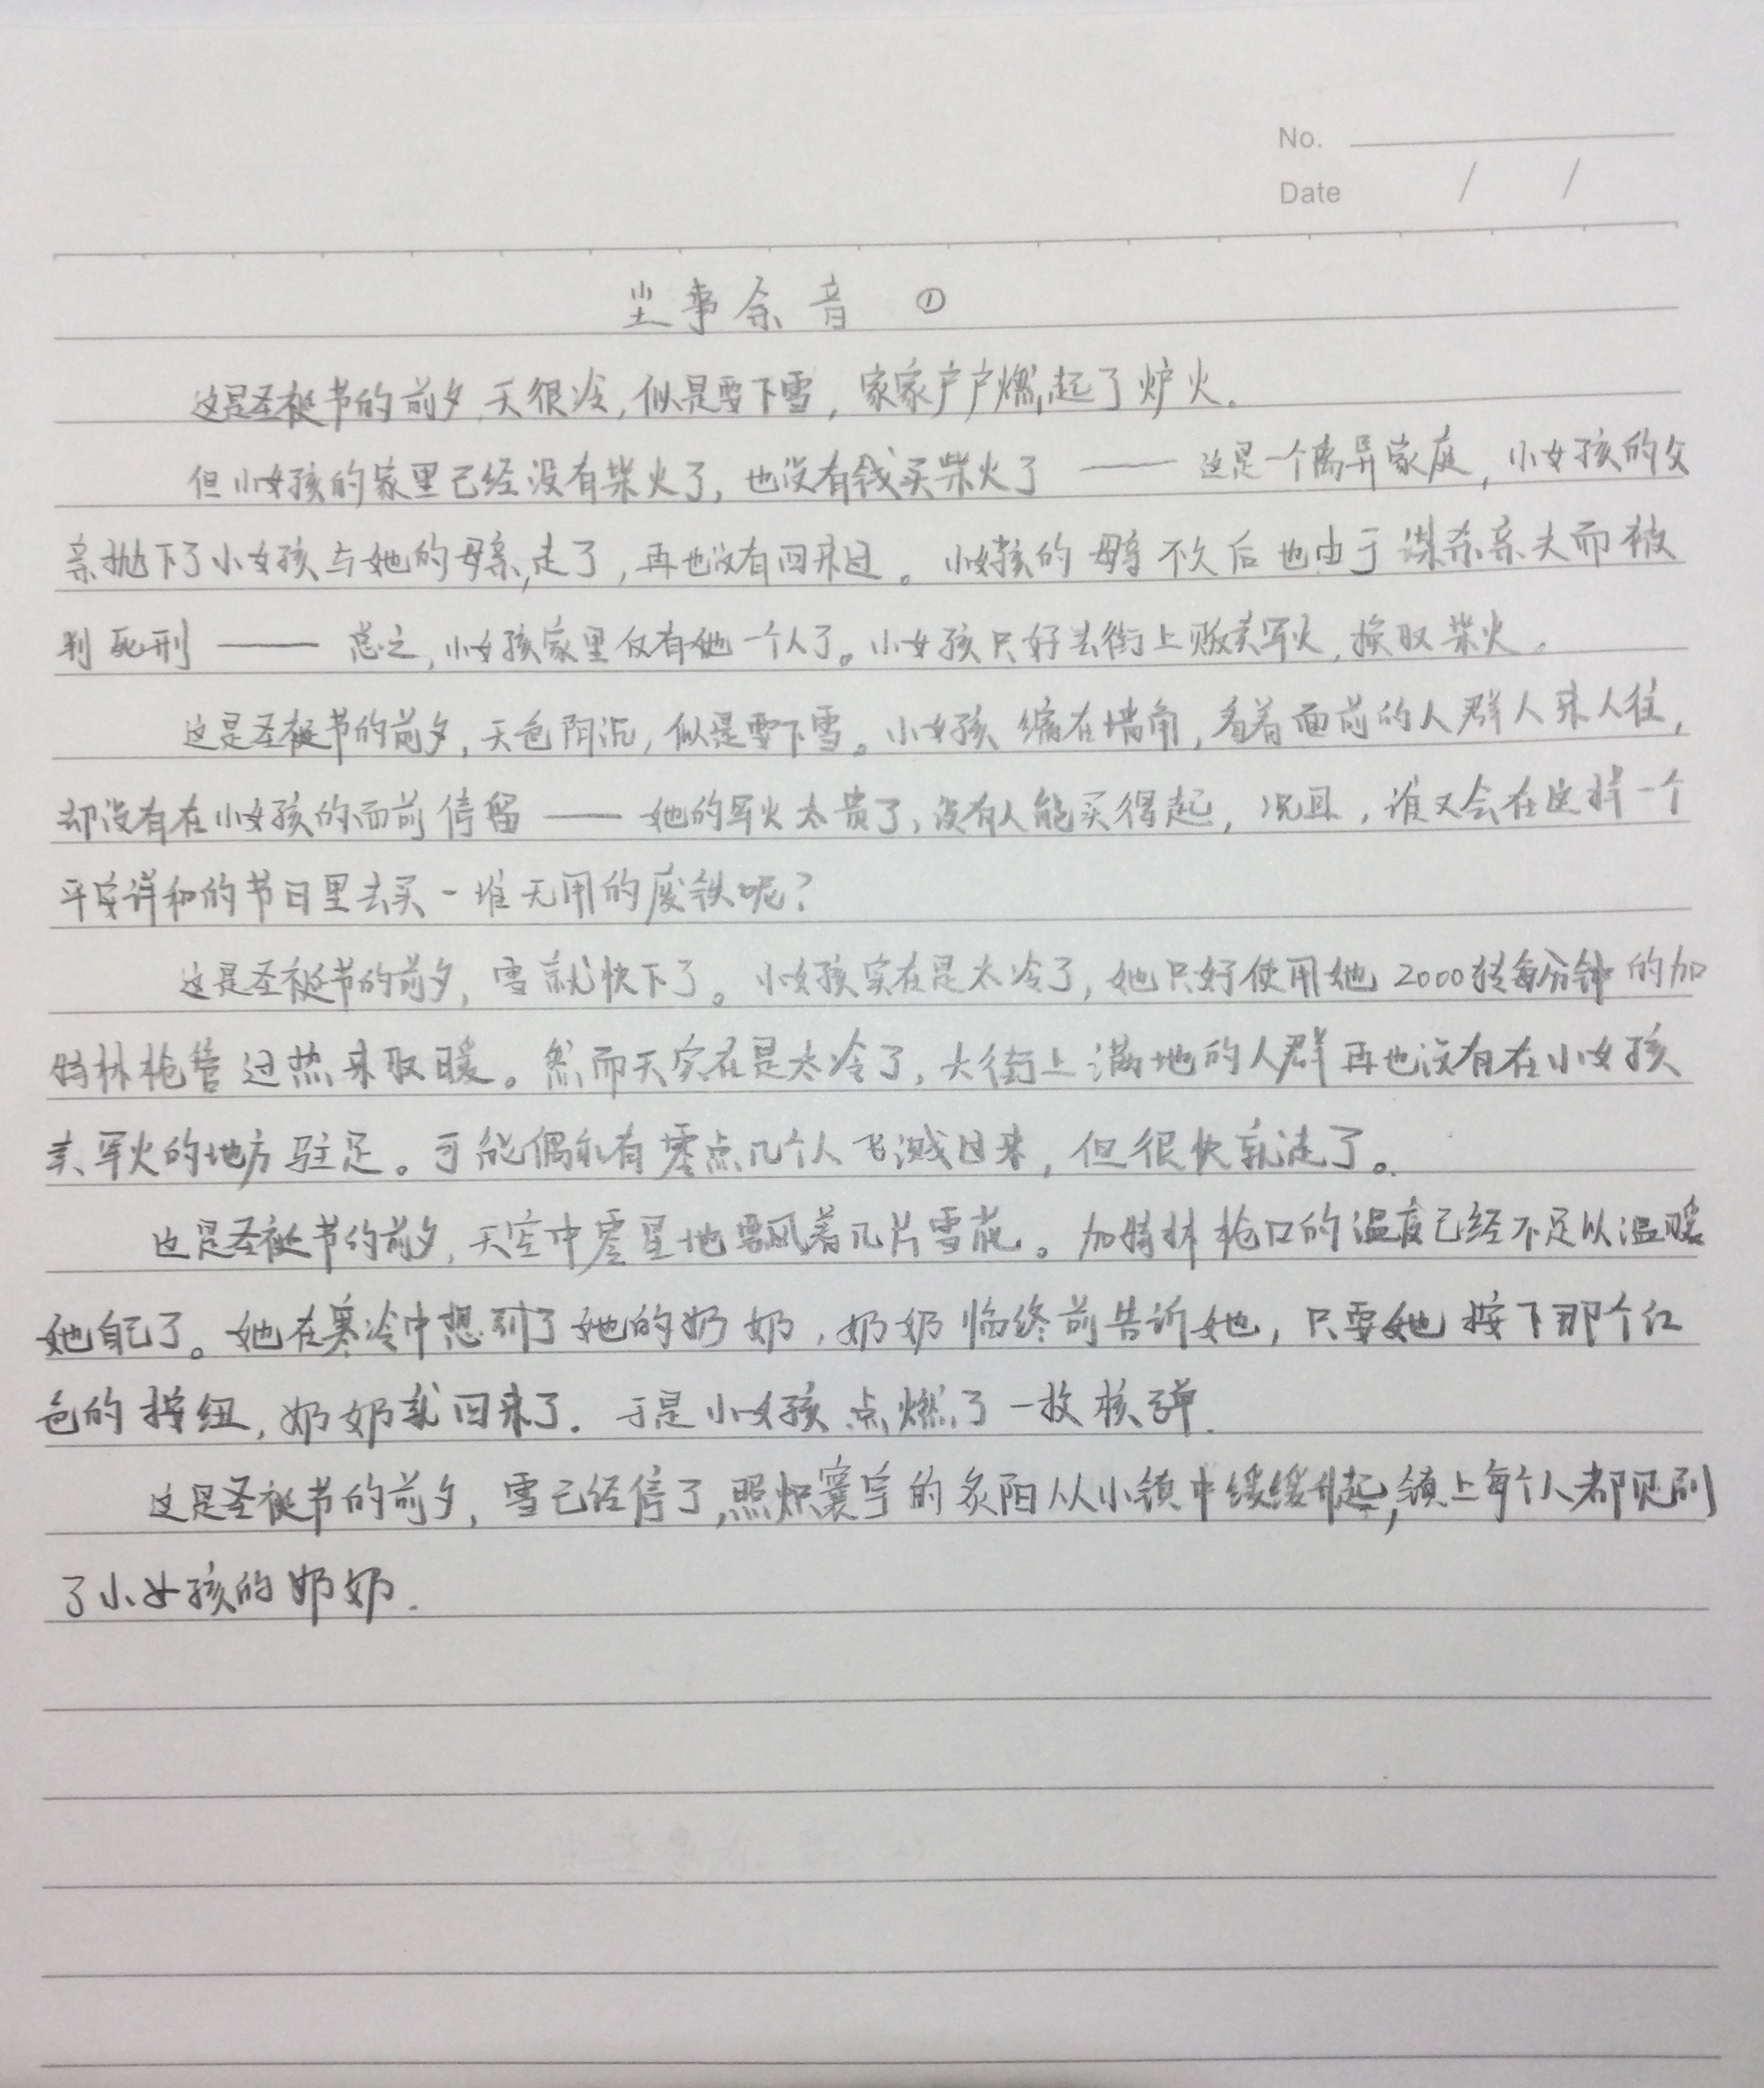 No.
Date / /
尘事余音 ①
这是圣诞节的前夕,天很冷,似是要下雪,家家户户燃起了炉火.
但小女孩的家里已经没有柴火了,也没有钱买柴火了 —— 这是一个离异家庭,小女孩的父
亲抛下了小女孩与她的母亲,走了,再也没有回来过。小女孩的母亲不久后也由于谋杀亲夫而被
判死刑 —— 总之,小女孩家里仅有她一个人了。小女孩只好去街上贩卖军火,换取柴火.
这是圣诞节的前夕,天色阴沉,似是要下雪。小女孩缩在墙角,看着面前的人群人来人往,
却没有在小女孩的面前停留 —— 她的军火太贵了,没有人能买得起,况且,谁又会在这样一个
平安详和的节日里去买一堆无用的废铁呢?
这是圣诞节的前夕,雪就快下了。小女孩实在是太冷了,她只好使用她2000转每分钟的加
特林枪管过热来取暖。然而天实在是太冷了,大街上满地的人群再也没有在小女孩
卖军火的地方驻足。可能偶尔有零点几个人飞溅过来,但很快就走了。
这是圣诞节的前夕,天空中零星地飘着几片雪花。加特林枪口的温度已经不足以温暖
她自己了。她在寒冷中想到了她的奶奶,奶奶临终前告诉她,只要她按下那个红
色的按纽,奶奶就回来了.于是小女孩点燃了一枚核弹.
这是圣诞节的前夕,雪已经停了,照炽寰宇的炙阳从小镇中缓缓升起,镇上每个人都见到
了小女孩的奶奶.